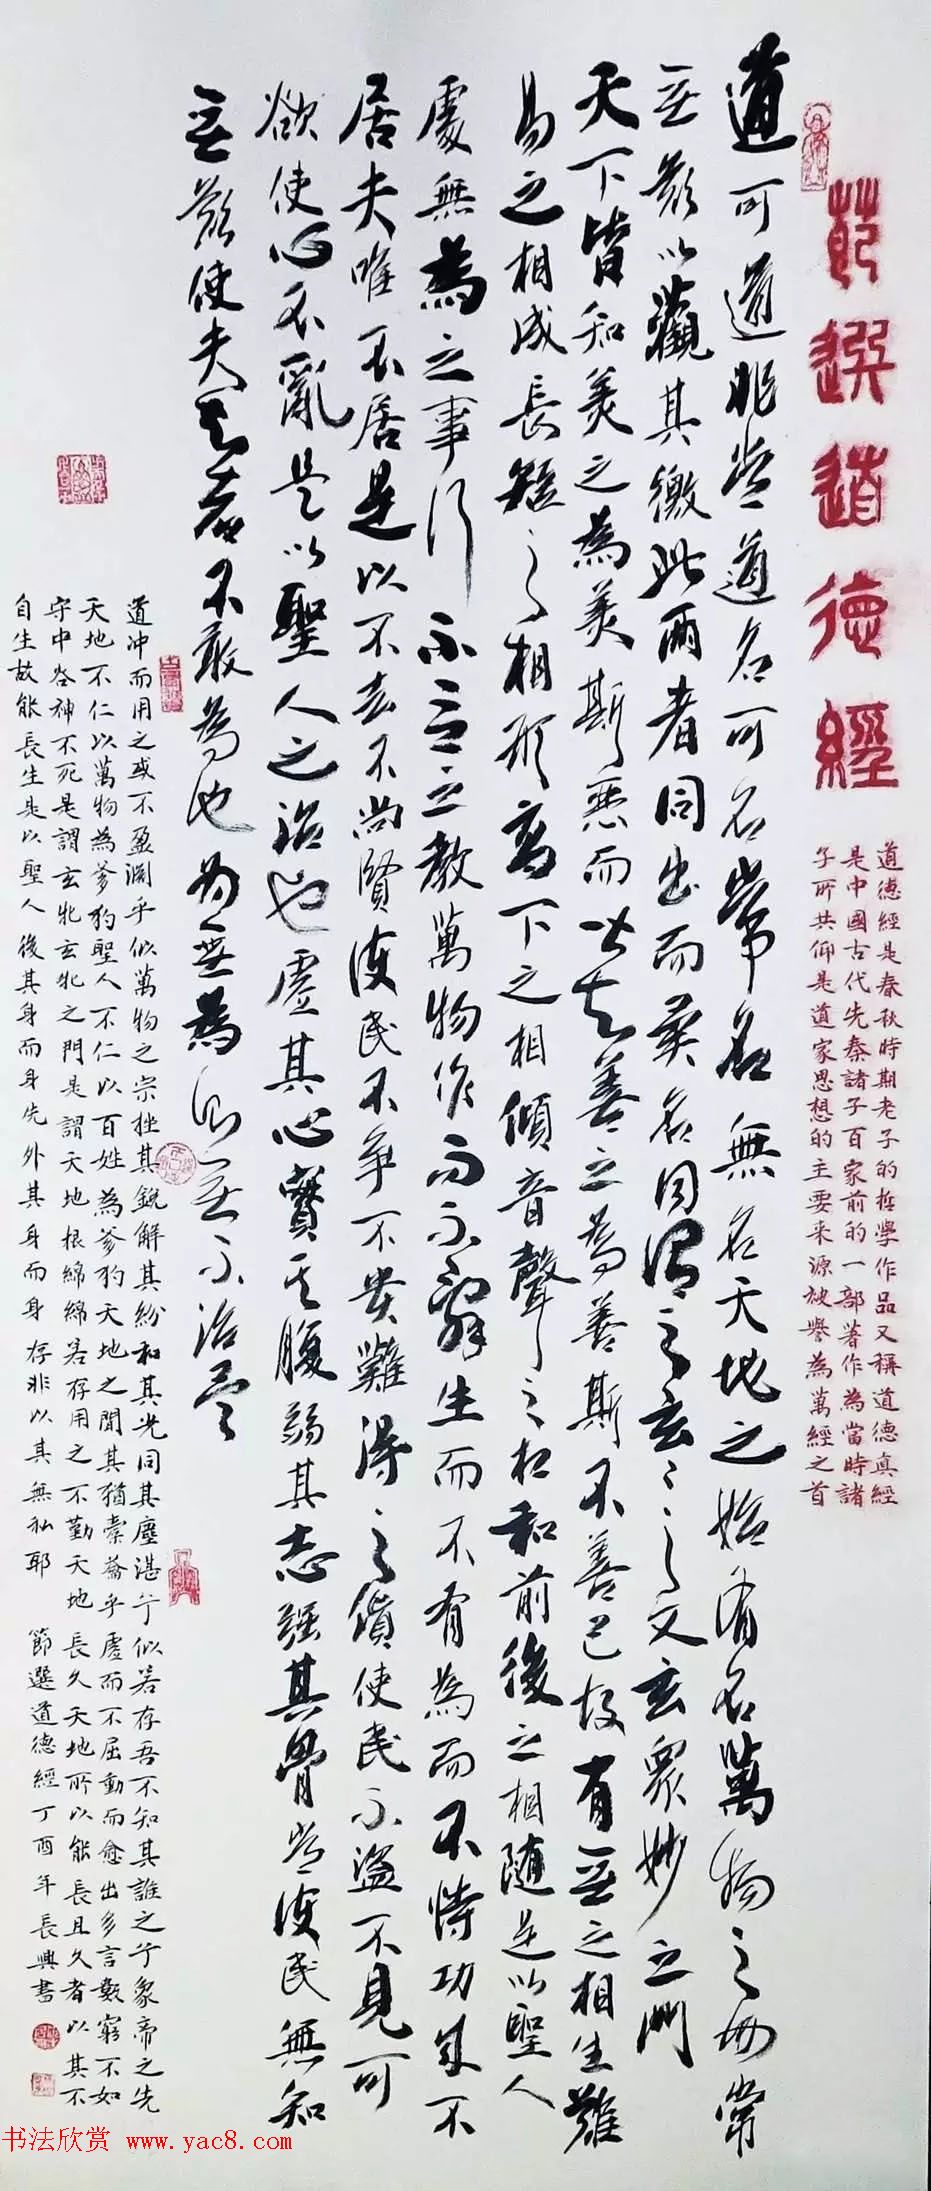 節選道德經
道德經是春秋時期老子的哲學作品又稱道德真經
是中國古代先秦諸子百家前的一部著作為當時諸
子所共仰是道家思想的主要来源被譽為萬經之首
道可道道非常道名可名常名無名天地之始有名萬物之母常
無欲以觀其徼此兩者同出而異名同謂之玄之又玄眾妙之門
天下皆知美之為美斯惡而皆知善之為善斯不善已故有無之相生難
易之相成長短之相形高下之相傾音聲之相和前後之相隨是以聖人
處無為之事行不言之教萬物作而不辭生而不有為而不恃功成不
居夫唯不居是以不去不尚賢使民不爭不貴難得之貨使民不盜不見可
欲使心不亂是以聖人之治也虛其心實其腹弱其志強其骨常使民無知
無欲使夫知者不敢為也為無為則無不治矣
道冲而用之或不盈渊乎似萬物之宗挫其銳解其紛和其光同其塵湛兮似若存吾不知其誰之兮象帝之先
天地不仁以萬物為爹狗聖人不仁以百姓為爹狗天地之間其猶橐籥乎虛而不屈動而愈出多言數窮不如
守中谷神不死是謂玄牝玄牝之門是謂天地根綿綿若存用之不勤天地長久天地所以能長且久者以其不
自生故能長生是以聖人後其身而身先外其身而身存非以其無私耶 節選道德經丁酉年長興書
书法欣赏 www.yac8.com